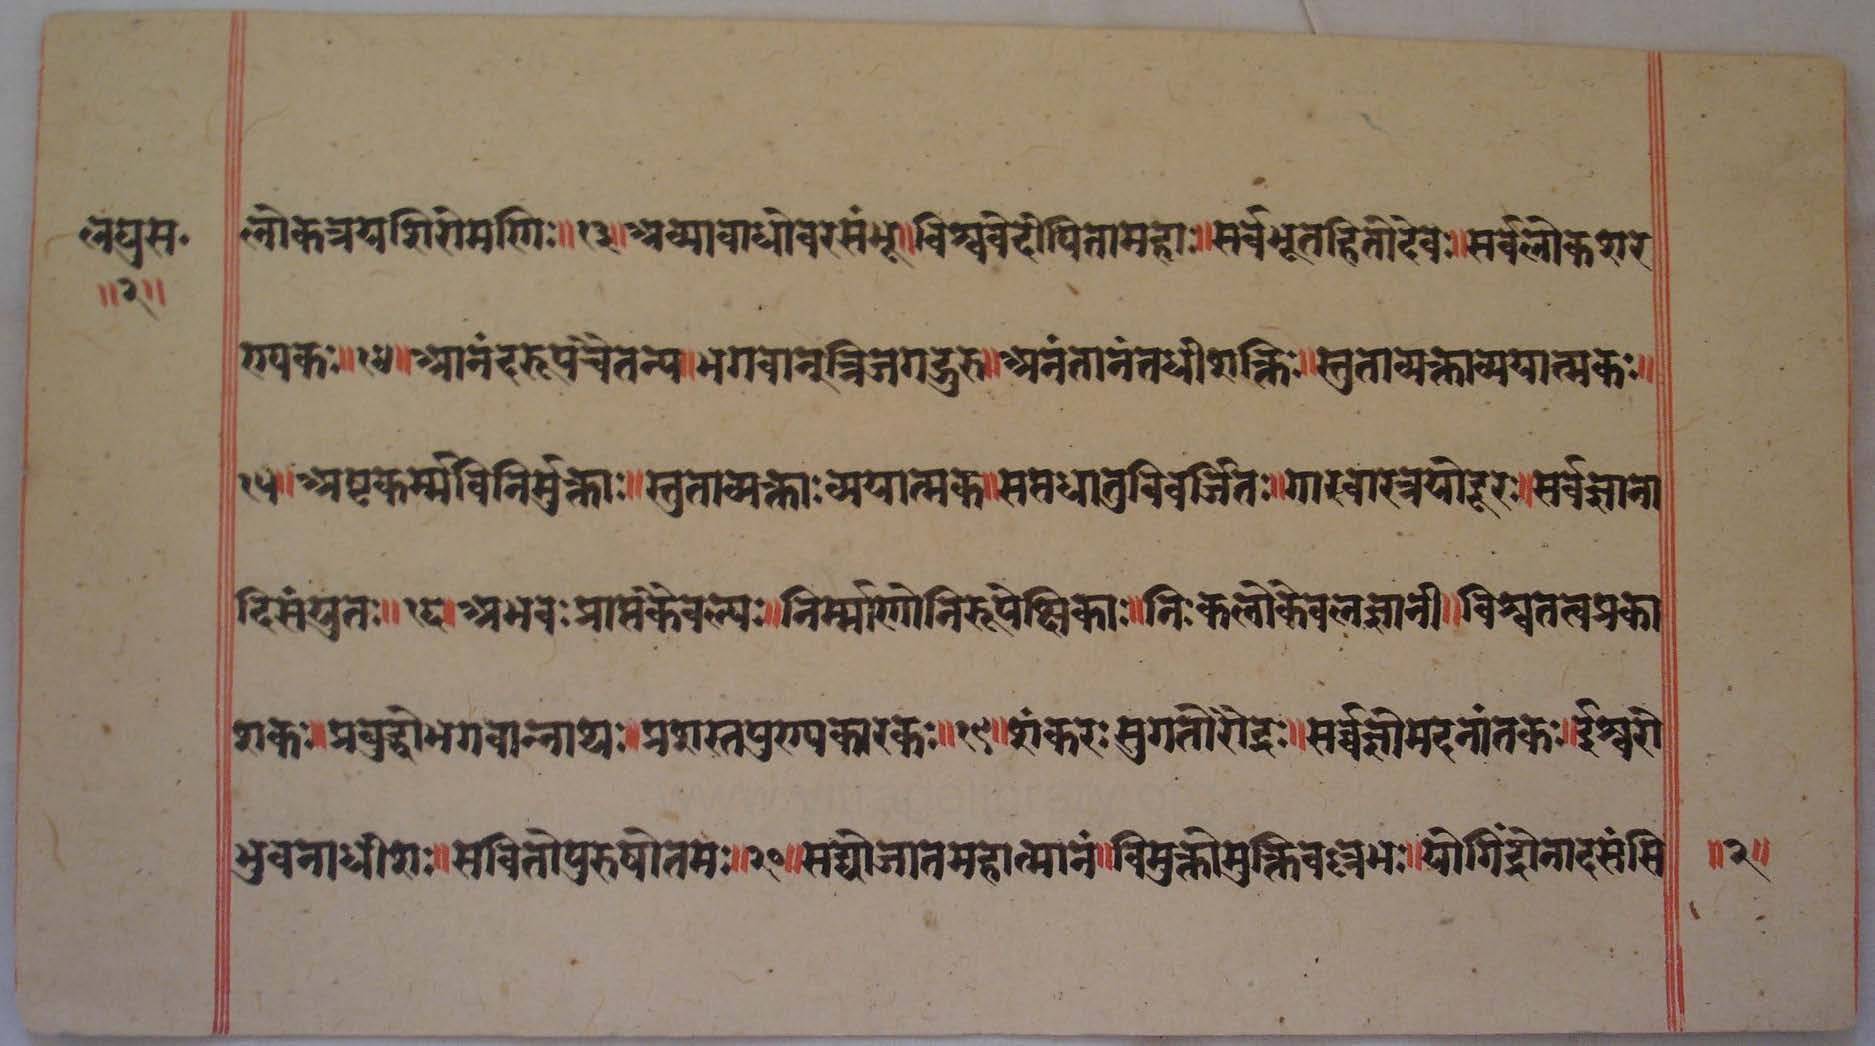 लघुस॰
॥२॥
लोकत्रयशिरोमणिः॥१३॥अव्याबाधोवरसंभू॥विश्ववेदीपितामहाः॥सर्वभूतहितोदेवः॥सर्वलोकशर
ण्यकः॥१४॥आनंदरूपचैतन्य॥भगवान्त्रिजगद्गुरु॥अनंतानंतधीशक्तिः॥स्तुताव्यक्ताव्ययात्मकः॥
१५॥अष्टकर्म्मविनिर्मुक्ताः॥स्तुताव्यक्ताःव्ययात्मक॥सप्तधातुविवर्जितः॥गारवारत्रयोदूरः॥सर्वज्ञानो
दिसंयुतः॥१६॥अभवःप्राप्तकैवल्यः॥निर्म्माणोनिरूपेक्षिकाः॥निःकलोकेवलज्ञानी॥विश्वतत्वप्रका
शकः॥प्रबुद्धोभगवान्नाथः॥प्रशस्तपुण्यकारकः॥१९॥शंकरःसुगतोरोद्रः॥सर्व्वज्ञोमदनांतकः॥ईश्वरो
भुवनाधीशः॥सवितोपुरुषोतमः॥२०॥सद्योजातमहात्मानं॥विमुक्तोमुक्तिवल्लभः॥योगिंद्रोनादसंसि
॥२॥